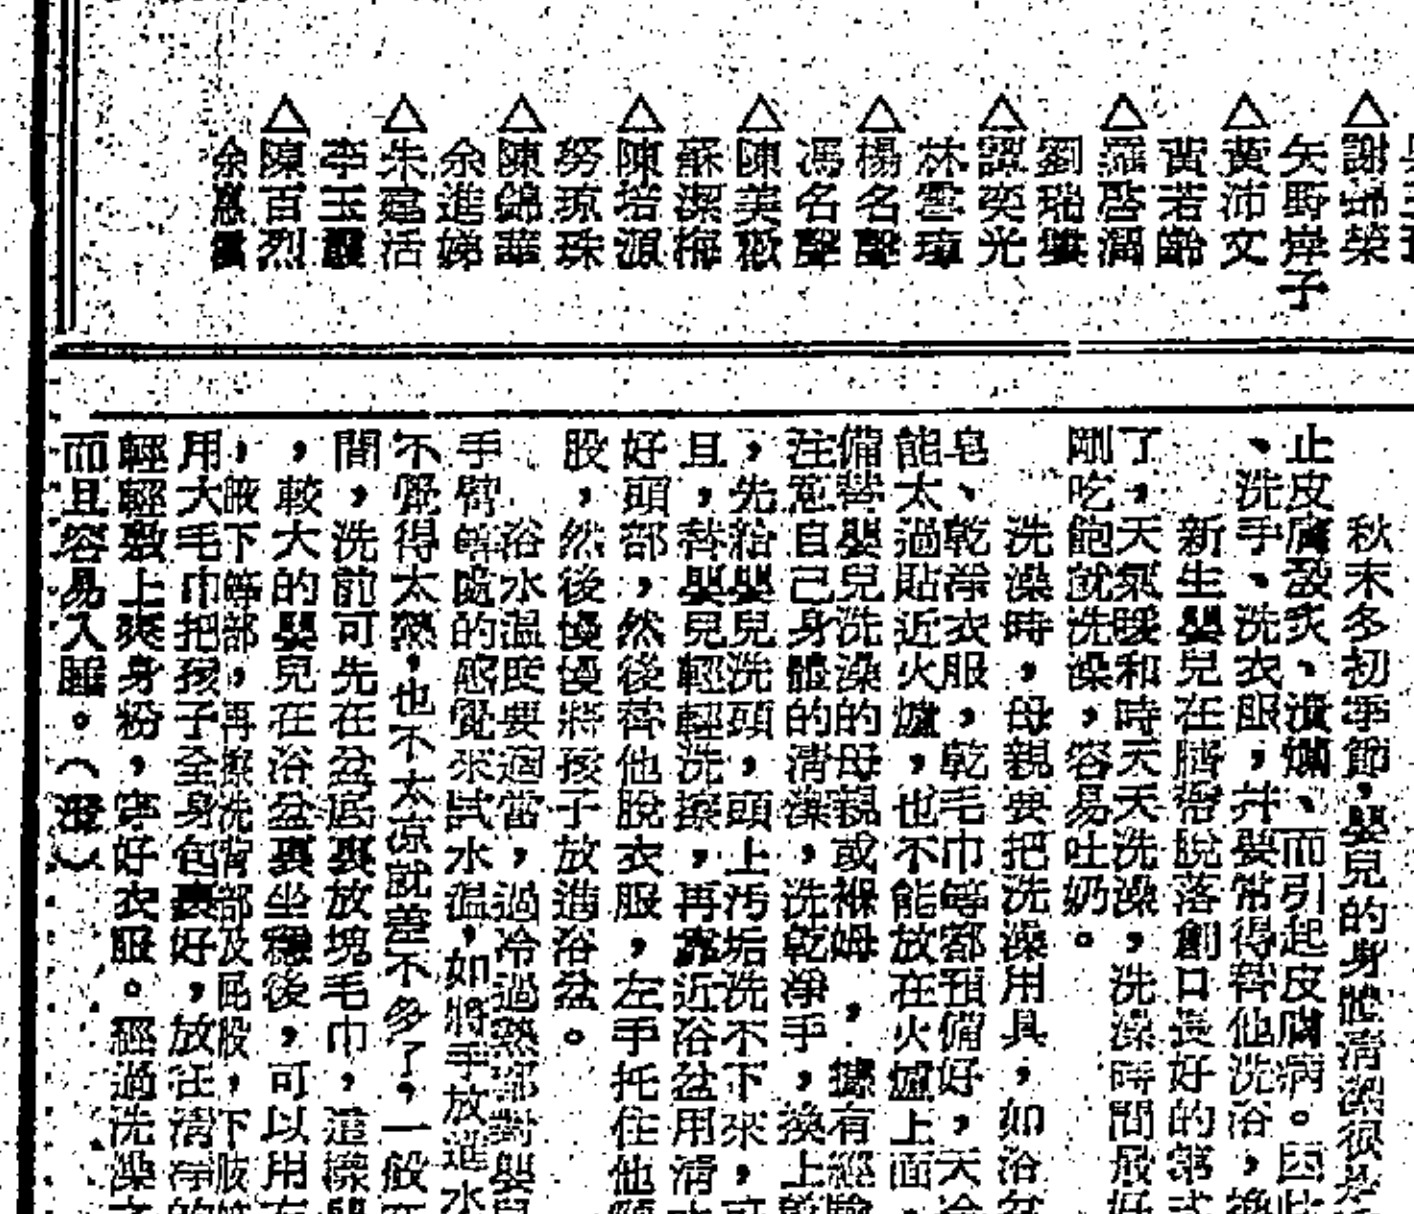 △謝錦榮
矢野岸子
△黃沛文
黃若齡
△羅啓潤
劉瑞
△譚奕光
林雲璋
△楊名聲
馮名聲
△陳美
蘇潔梅
△陳培源
勞琼珠
△陳錦華
余進娣
△朱建活
李玉
△陳百烈
余
秋末冬初季節,嬰兒的身體清潔很
止皮膚發炎、潰爛、而引起皮膚病。因此
、洗手、洗衣服,并要常得替他洗浴,換
新生嬰兒在臍帶脫落創口長好的第
了,天氣暖和時天天洗澡,洗澡時間最好
剛吃飽就洗澡,容易吐奶。
洗澡時,母親要把洗澡用具,如浴盆
皂、乾淨衣服,乾毛巾等都預備好,天冷
能太過貼近火爐,也不能放在火爐上面,
備替嬰兒洗澡的母親或褓姆,據有經驗
注意自己身體的清潔,洗乾凈手,換上
,先給嬰兒洗頭,頭上污垢洗不下來,可
且,替嬰兒輕輕洗擦,再靠近浴盆用清水
好頭部,然後替他脫衣服,左手托住他
股,然後慢慢將孩子放進浴盆。
浴水温度要適當,過冷過熱都對嬰兒
手臂等處的感覺來試水温,如將手放進水
不覺得太熱,也不太凉就差不多了,一般
間,洗前可先在盆底裏放塊毛巾,這樣嬰
,較大的嬰兒在浴盆裏坐穩後,可以用右
,腋下等部,再擦洗背部及屁股,下肢
用大毛巾把孩子全身包裹好,放在清凈的
輕輕敷上爽身粉,穿好衣服。經過洗澡之
而且容易入睡。(澄)